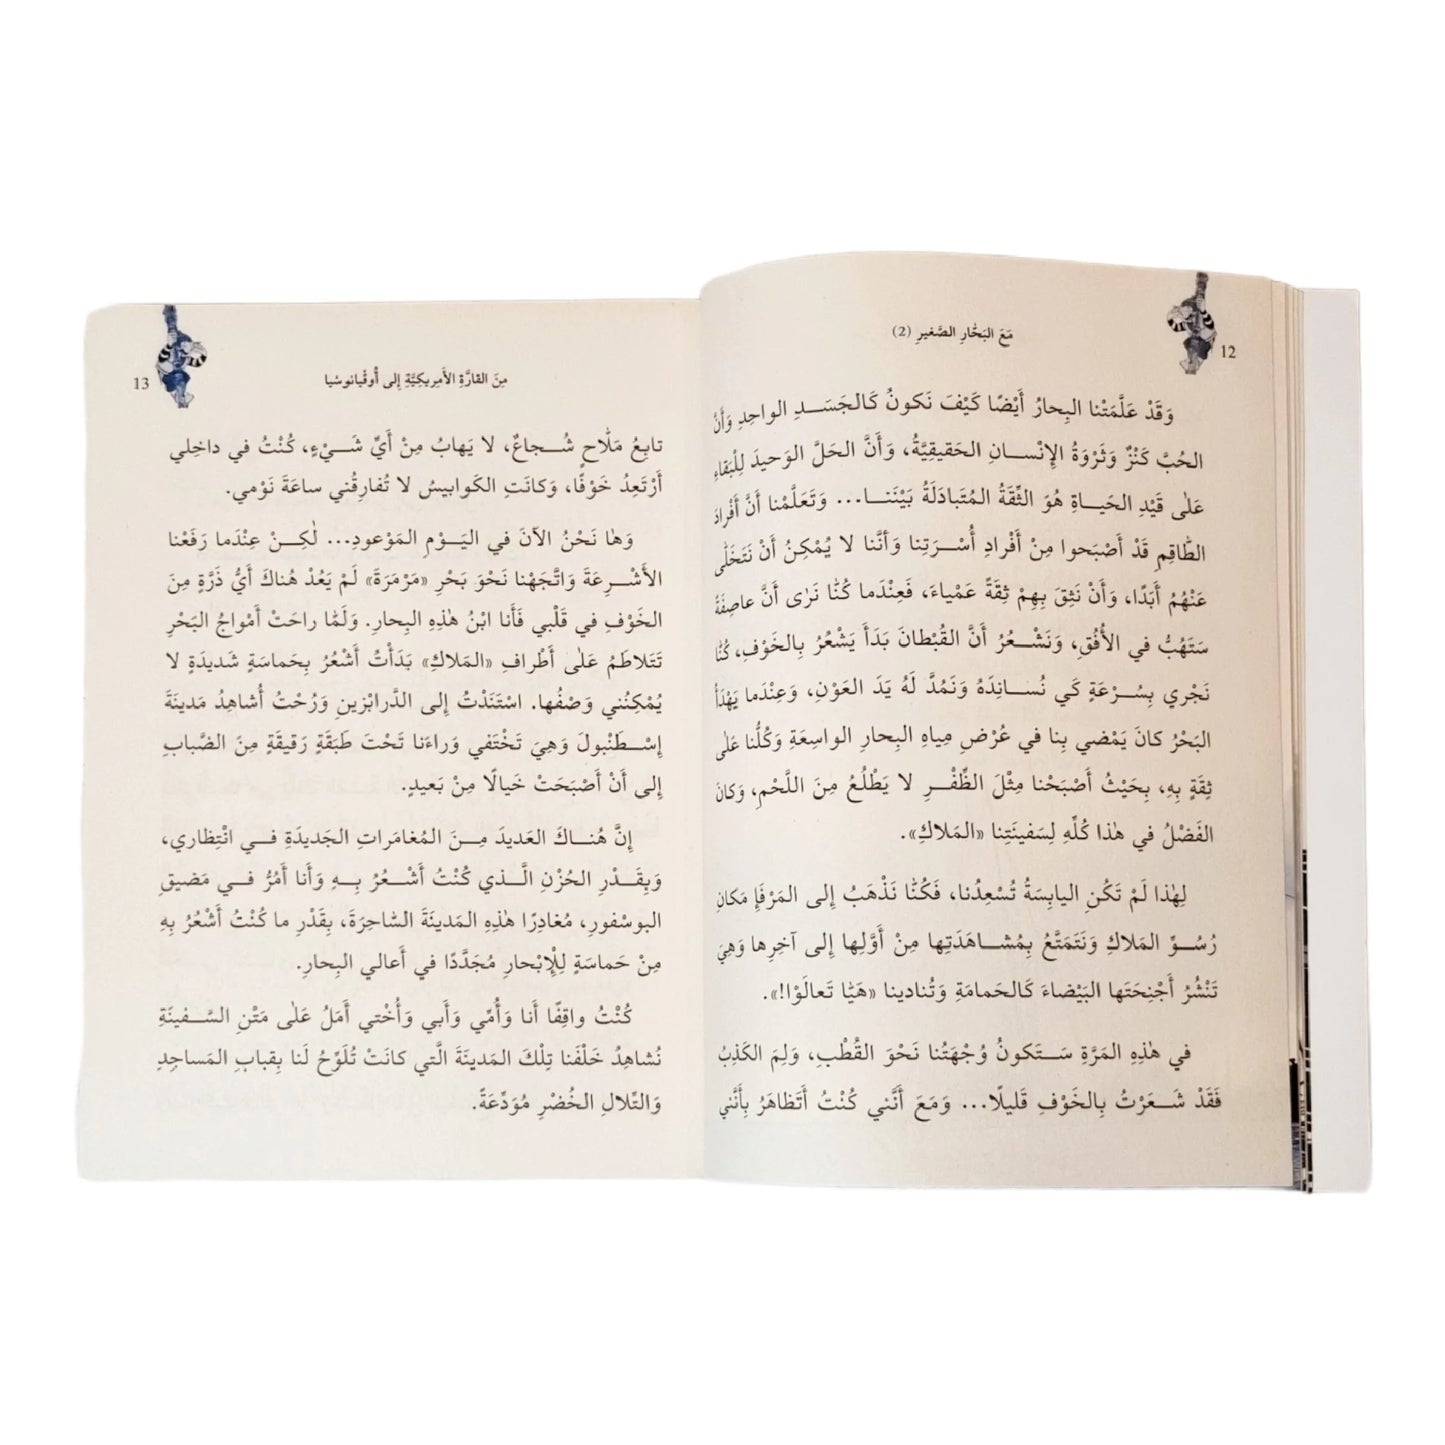 12
مَعَ البَحّارِ الصَّغيرِ (2)
وَقَدْ عَلَّمَتْنا البِحارُ أَيْضًا كَيْفَ نَكونُ كَالجَسَدِ الواحِدِ وَأَنَّ
الحُبَّ كَنْزٌ وَثَرْوَةُ الإِنْسانِ الحَقيقِيَّةُ، وَأَنَّ الحَلَّ الوَحيدَ لِلْبَقاءِ
عَلٰى قَيْدِ الحَياةِ هُوَ الثِّقَةُ المُتَبادَلَةُ بَيْنَنا... وَتَعَلَّمْنا أَنَّ أَفْرادَ
الطّاقِمِ قَدْ أَصْبَحوا مِنْ أَفْرادِ أُسْرَتِنا وَأَنَّنا لا يُمْكِنُ أَنْ نَتَخَلّٰى
عَنْهُمُ أَبَدًا، وَأَنْ نَثِقَ بِهِمْ ثِقَةً عَمْياءَ، فَعِنْدَما كُنّا نَرٰى أَنَّ عاصِفَةً
سَتَهُبُّ في الأُفُقِ، وَنَشْعُرُ أَنَّ القُبْطانَ بَدَأَ يَشْعُرُ بِالخَوْفِ، كُنّا
نَجْري بِسُرْعَةٍ كَي نُسانِدَهُ وَنَمُدَّ لَهُ يَدَ العَوْنِ، وَعِنْدَما يَهْدَأُ
البَحْرُ كانَ يَمْضي بِنا في عُرْضِ مِياهِ البِحارِ الواسِعَةِ وَكُلُّنا عَلٰى
ثِقَةٍ بِهِ، بِحَيْثُ أَصْبَحْنا مِثْلَ الظِّفْرِ لا يَطْلُعُ مِنَ اللَّحْمِ، وَكانَ
الفَضْلُ في هٰذا كُلِّهِ لِسَفينَتِنا «المَلاكِ».
لِهٰذا لَمْ تَكُنِ اليابِسَةُ تُسْعِدُنا، فَكُنّا نَذْهَبُ إِلى المَرْفَإِ مَكانِ
رُسُوِّ المَلاكِ وَنَتَمَتَّعُ بِمُشاهَدَتِها مِنْ أَوَّلِها إِلى آخِرِها وَهِيَ
تَنْشُرُ أَجْنِحَتَها البَيْضاءَ كَالحَمامَةِ وَتُنادينا «هَيّا تَعالَوْا!».
في هٰذِهِ المَرَّةِ سَتَكونُ وُجْهَتُنا نَحْوَ القُطْبِ، وَلِمَ الكَذِبُ
فَقَدْ شَعَرْتُ بِالخَوْفِ قَليلًا... وَمَعَ أَنَّني كُنْتُ أَتَظاهَرُ بِأَنَّني
13
مِنَ القارَّةِ الأَمِريكِيَّةِ إِلى أُوقْيانوسْيا
تابِعُ مَلّاحٍ شُجاعٌ، لا يَهابُ مِنْ أَيِّ شَيْءٍ، كُنْتُ في داخِلي
أَرْتَعِدُ خَوْفًا، وَكانَتِ الكَوابيسُ لا تُفارِقُني ساعَةَ نَوْمي.
وَها نَحْنُ الآنَ في اليَوْمِ المَوْعودِ... لٰكِنْ عِنْدَما رَفَعْنا
الأَشْرِعَةَ وَاتَّجَهْنا نَحْوَ بَحْرِ «مَرْمَرَةَ» لَمْ يَعُدْ هُناكَ أَيُّ ذَرَّةٍ مِنَ
الخَوْفِ في قَلْبي فَأَنا ابْنُ هٰذِهِ البِحارِ. وَلَمّا راحَتْ أَمْواجُ البَحْرِ
تَتَلاطَمُ عَلٰى أَطْرافِ «المَلاكِ» بَدَأْتُ أَشْعُرُ بِحَماسَةٍ شَديدَةٍ لا
يُمْكِنُني وَصْفُها. اسْتَنَدْتُ إِلى الدَّرابْزينِ وَرُحْتُ أُشاهِدُ مَدينَةَ
إِسْطَنْبولَ وَهِيَ تَخْتَفي وَراءَنا تَحْتَ طَبَقَةٍ رَقيقَةٍ مِنَ الضَّبابِ
إِلى أَنْ أَصْبَحَتْ خَيالًا مِنْ بَعيدٍ.
إِنَّ هُناكَ العَديدَ مِنَ المُغامَراتِ الجَديدَةِ في انْتِظاري،
وَبِقَدْرِ الحُزْنِ الَّذي كُنْتُ أَشْعُرُ بِهِ وَأَنا أَمُرُّ في مَضيقِ
البوسْفورِ، مُغادِرًا هٰذِهِ المَدينَةَ السّاحِرَةَ، بِقَدْرِ ما كُنْتُ أَشْعُرُ بِهِ
مِنْ حَماسَةٍ لِلْإِبْحارِ مُجَدَّدًا في أَعالي البِحارِ.
كُنْتُ واقِفًا أَنا وَأُمّي وَأَبي وَأُخْتي أَمَلُ عَلٰى مَتْنِ السَّفينَةِ
نُشاهِدُ خَلْفَنا تِلْكَ المَدينَةَ الَّتي كانَتْ تُلَوِّحُ لَنا بِقِبابِ المَساجِدِ
وَالتِّلالِ الخُضْرِ مُوَدِّعَةً.